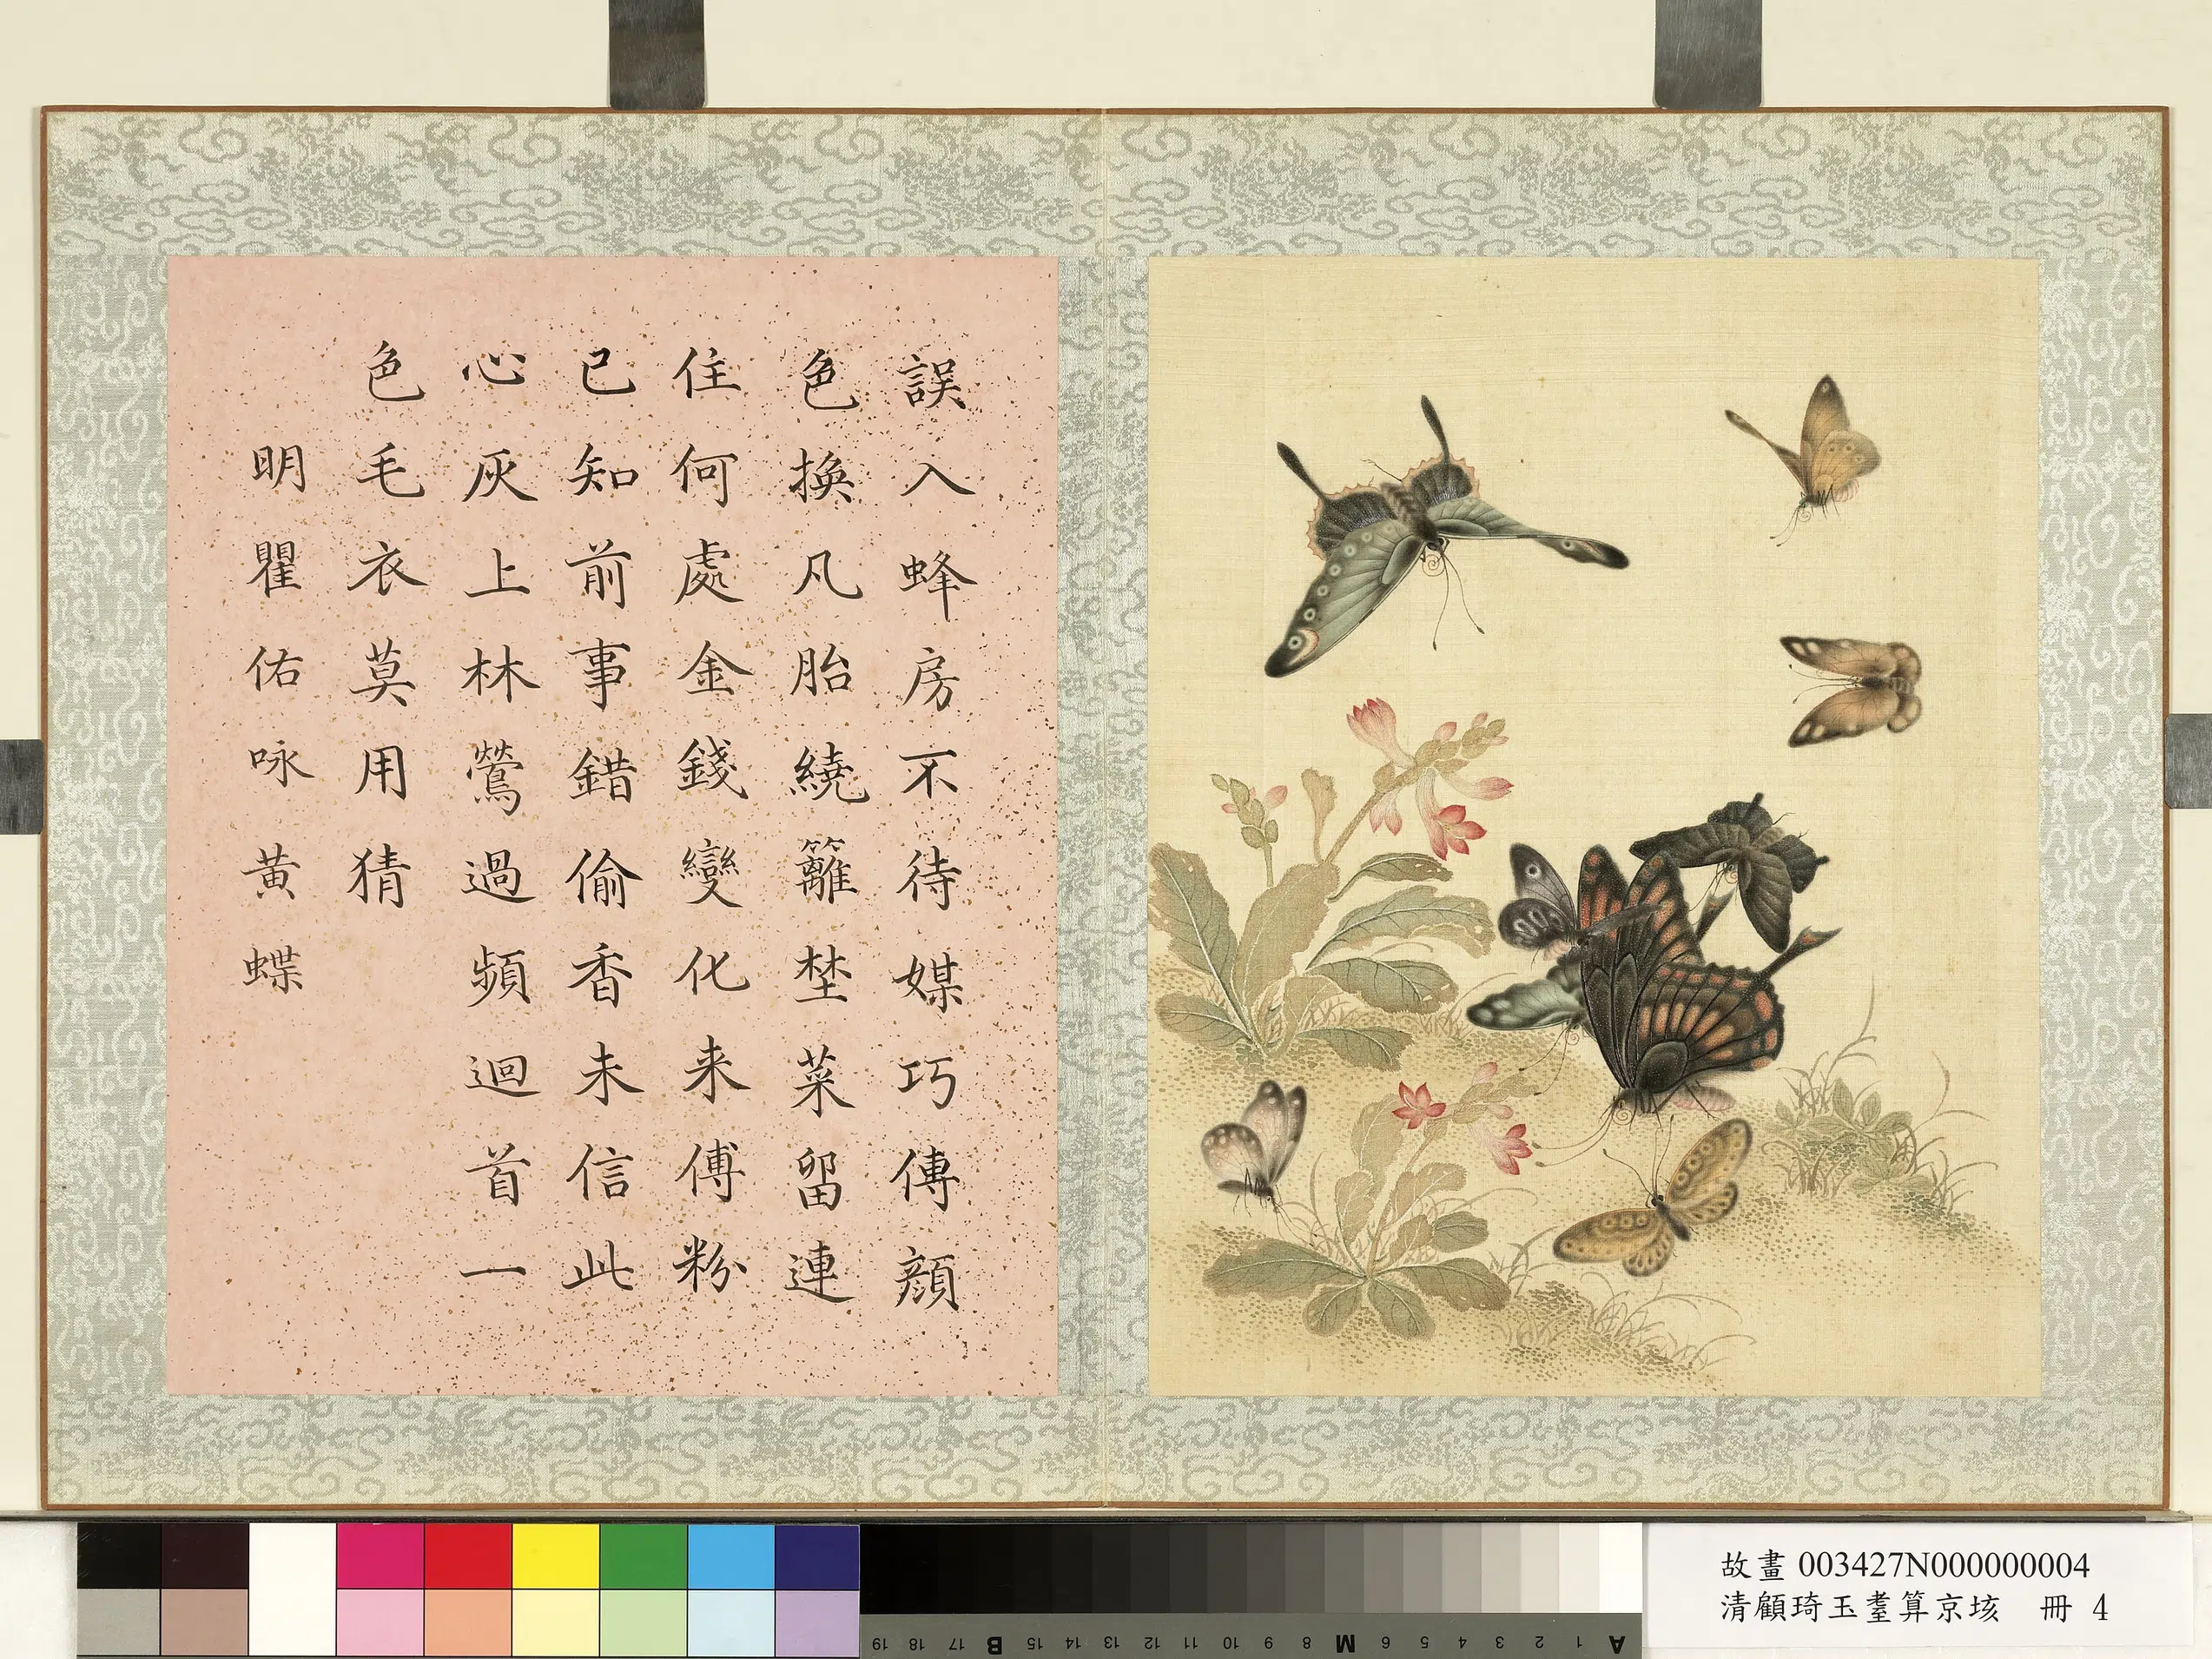 誤入蜂房不待媒巧傳顔
色換凡胎繞籬埜菜留連
住何處金錢變化来傅粉
已知前事錯偷香未信此
心灰上林鶯過頻迴首一
色毛衣莫用猜
明瞿佑咏黄蝶
故畫 003427N000000004
清顧琦玉耋算京垓 冊 4
19 18 17 B 15 14 13 12 11 10 9 8 M 6 5 4 3 2 1 A